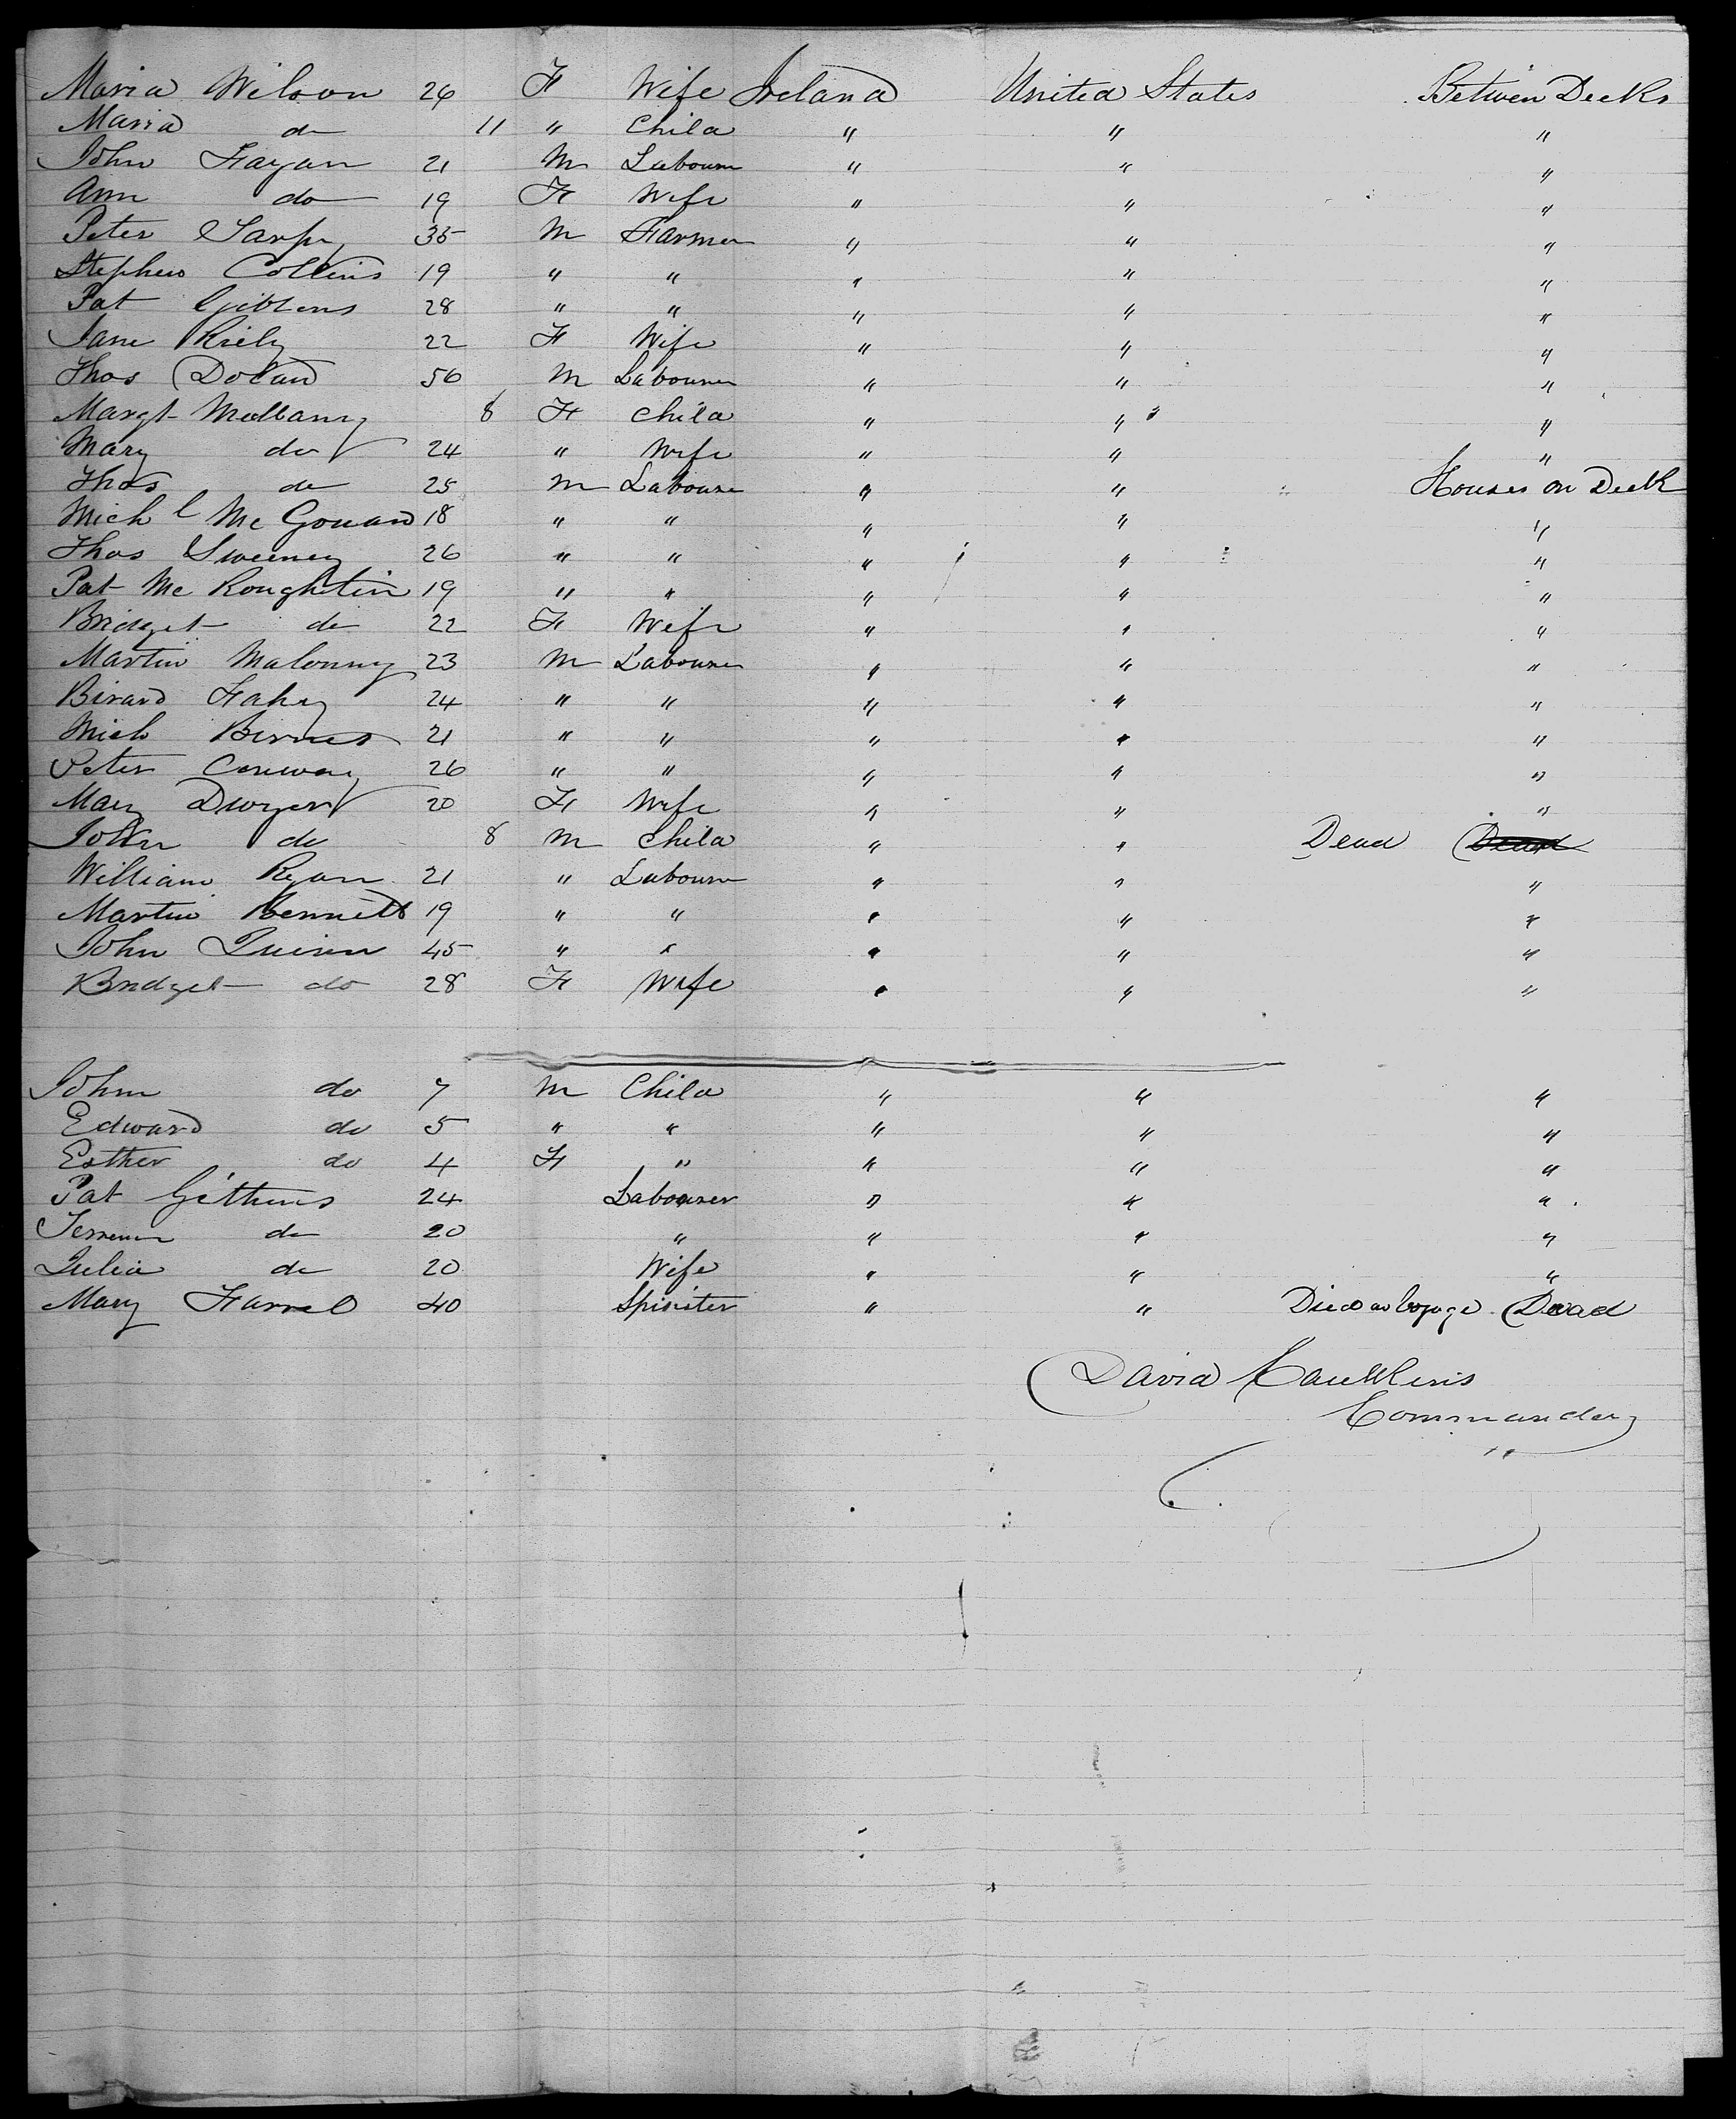 Maria Wilson 26 F Wife Ireland United States Between Decks
Maria do 11 " Child " " "
John Fagan 21 M Labourer " " "
Ann do 19 F Wife " " "
Peter 35 M Farmer " " "
Stephen Collins 19 " " " " "
Pat Gibbons 28 " " " " "
Jane Riely 22 F Wife " " "
Thos Dolan 56 M Labourer " " "
Margt 8 F Child " " "
Mary do 24 " Wife " " "
Thos do 25 M Labourer " " Houses on Deck
Michl Mc Gowan 18 " " " " "
Thos Sweeney 26 " " " " "
Pat Mc Koughlin 19 " " " " "
Bridget do 22 F Wife " " "
Martin Malonny 23 M Labourer " " "
Fahey 24 " " " " "
Mich Birnes 21 " " " " "
Peter Conway 26 " " " " "
Mary Dwyer 20 F Wife " " "
John do 8 M Child " " Dead Dead
William Ryan 21 " Labourer " " "
Martin Bennett 19 " " " " "
John Quinn 45 " " " " "
Bridget do 28 F Wife " " "
John do 7 M Child " " "
Edward do 5 " " " " "
Esther do 4 F " " " "
Pat Githens 24 Labourer " " "
do 20 " " " "
Julia do 20 Wife " " "
Mary Farrel 40 Spinster " " Died on Voyage Dead
David
Commander